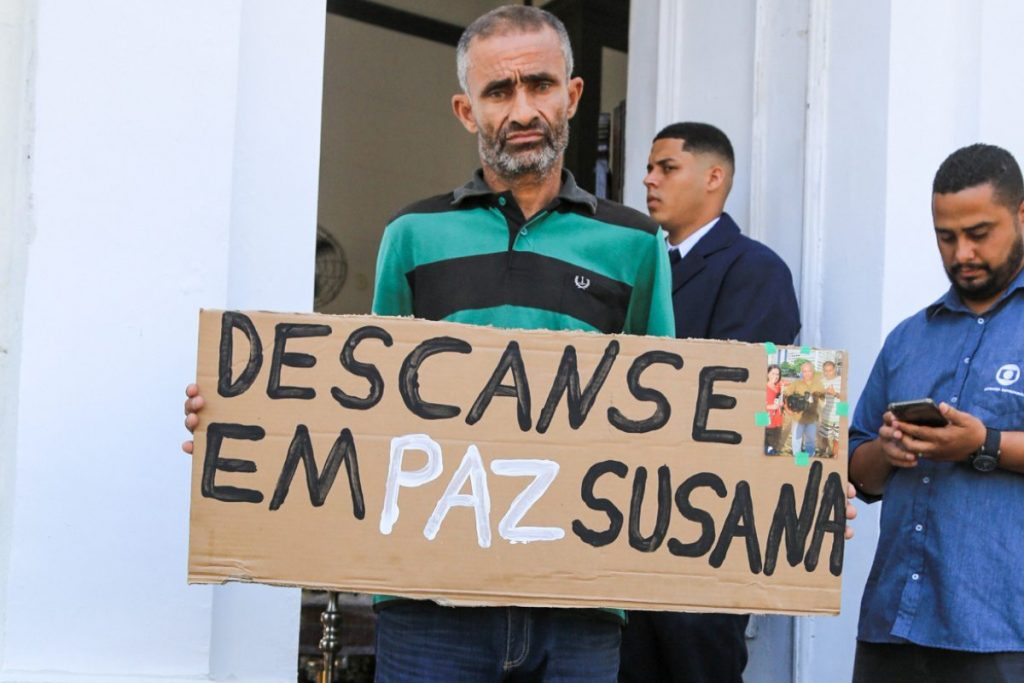 DESCANSE
EM PAZ SUSANA